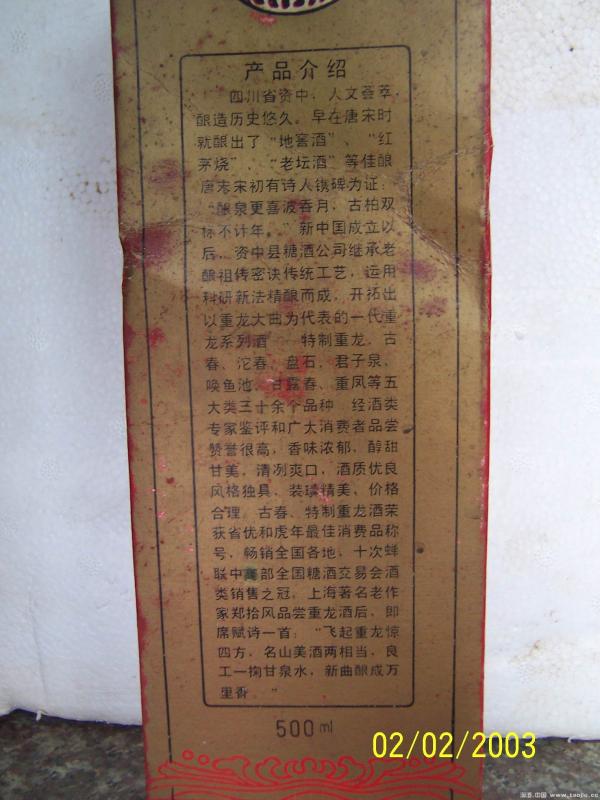 产品介绍
四川省资中，人文荟萃，
酿造历史悠久。早在唐宋时
就酿出了“地窖酒”、“红
茅烧”、“老坛酒”等佳酿
唐末宋初有诗人镌碑为证：
“酿泉更喜波吞月，古柏双
标不计年。”新中国成立以
后，资中县糖酒公司继承老
酿祖传密诀传统工艺，运用
科研新法精酿而成，开拓出
以重龙大曲为代表的一代重
龙系列酒 特制重龙、古
春、沱春、盘石、君子泉、
唤鱼池、甘露春、重凤等五
大类三十余个品种 经酒类
专家鉴评和广大消费者品尝
赞誉很高，香味浓郁，醇甜
甘美，清冽爽口，酒质优良
风格独具，装璜精美，价格
合理。古春、特制重龙酒荣
获省优和虎年最佳消费品称
号，畅销全国各地，十次蝉
联中商部全国糖酒交易会酒
类销售之冠，上海著名老作
家郑拾风品尝重龙酒后，即
席赋诗一首：“飞起重龙惊
四方，名山美酒两相当，良
工一掬甘泉水，新曲酿成万
里香 ”
500ml
02/02/2003
淘酒.中国 www.taojiu.cc